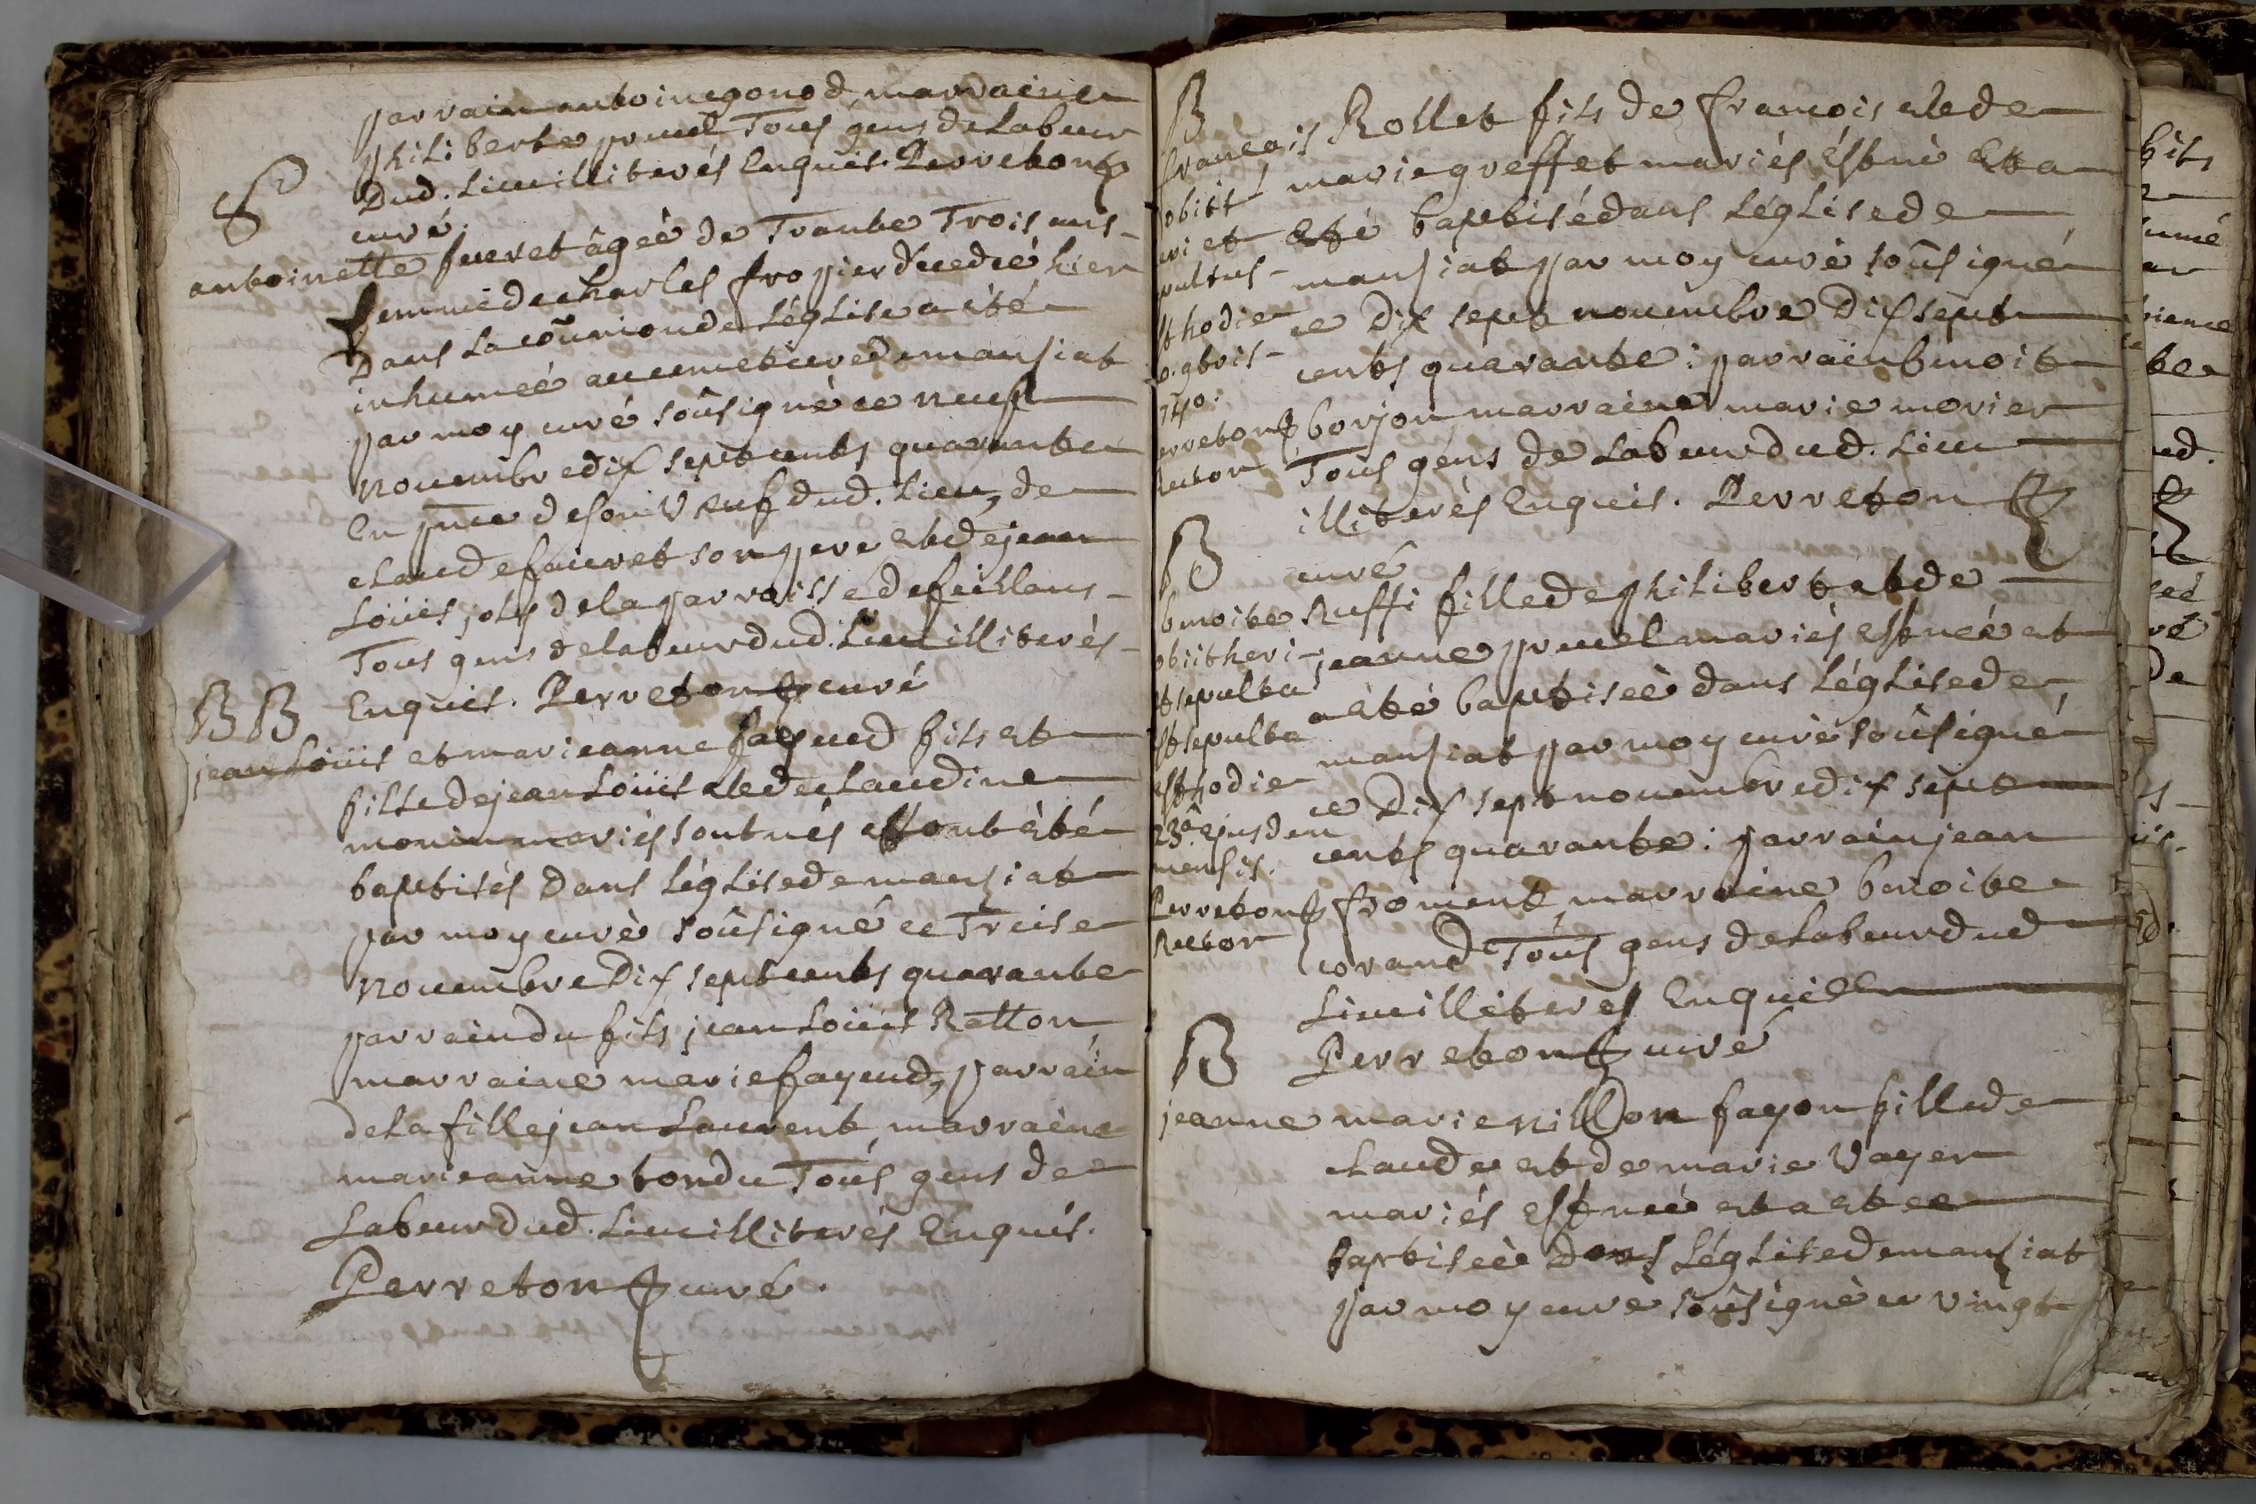 parrain antoine gonod, marraine
philiberte pruel Tous gens de labeur
Dud. Lieu illiterés Enquis. Perreton
curé.
S
antoinette feuret âgeé de Trante Trois ans
femme de charles fropier decedeé hier
Dans la com̃union de Léglise a été
inhumeé au cimetiere de mansiat
par moy curé soûsigné ce neuf
novembre dix sept cents quarante
En pnce de son Veuf dud. Lieu, de
claude feuret son pere et de jean
Loüis joly de la parroisse de feillans
Tous gens de labeur dud. Lieu illiterés
Enquis. Perreton curé
B B
jean Loüis et marieanne fayeud fils et
fille de jean Loüis et de claudine
monin mariés sont nés et ont été
baptisés dans Léglise de mansiat
par moy curé soûsigné ce Treise
novembre Dix sept cents quarante
parrain du fils jean Loüis Retton
marraine marie fayeud, parrain
de la fille jean Laurent, marraine
marieanne tondu Tous gens de
Labeur dud. Lieu illiterés Enquis.
Perreton curé.
B
francois Rollet fils de francois et de
marie greffet mariés Est né Et a
Eté baptisé dans Léglise de
mansiat par moy curé soûsigné
ce Dix sept novembre Dix sept
cents quarante: parrain benoit
borjon marraine marie morier
Tous gens de Labeur dud. Lieu
illiterés Enquis. Perreton
curé
obiit
eri et
pultus
st hodie
o. gbris
1740.
erreton
Rector
B
benoite Ruffi fille de philibert et de
jeanne pruel mariés est neé et
a eté baptiseé dans Léglise de
mansiat par moy curé soûsigné
ce Dix sept novembre dix sept
cents quarante: parrain jean
froment, marraine benoite
corand Tous gens de Labeur dud
Lieu illiterés Enquis
Perreton curé
obiit heri
et sepulta
st sepulta
est hodie
23â ejusdem
mensis.
Perreton
Rector
B
jeanne marie nillon fayon fille de
claude et de marie Vayer
mariés est neé et a eteé
baptiseé dans Léglise de mansiat
par moy curé soûsigné ce vingt